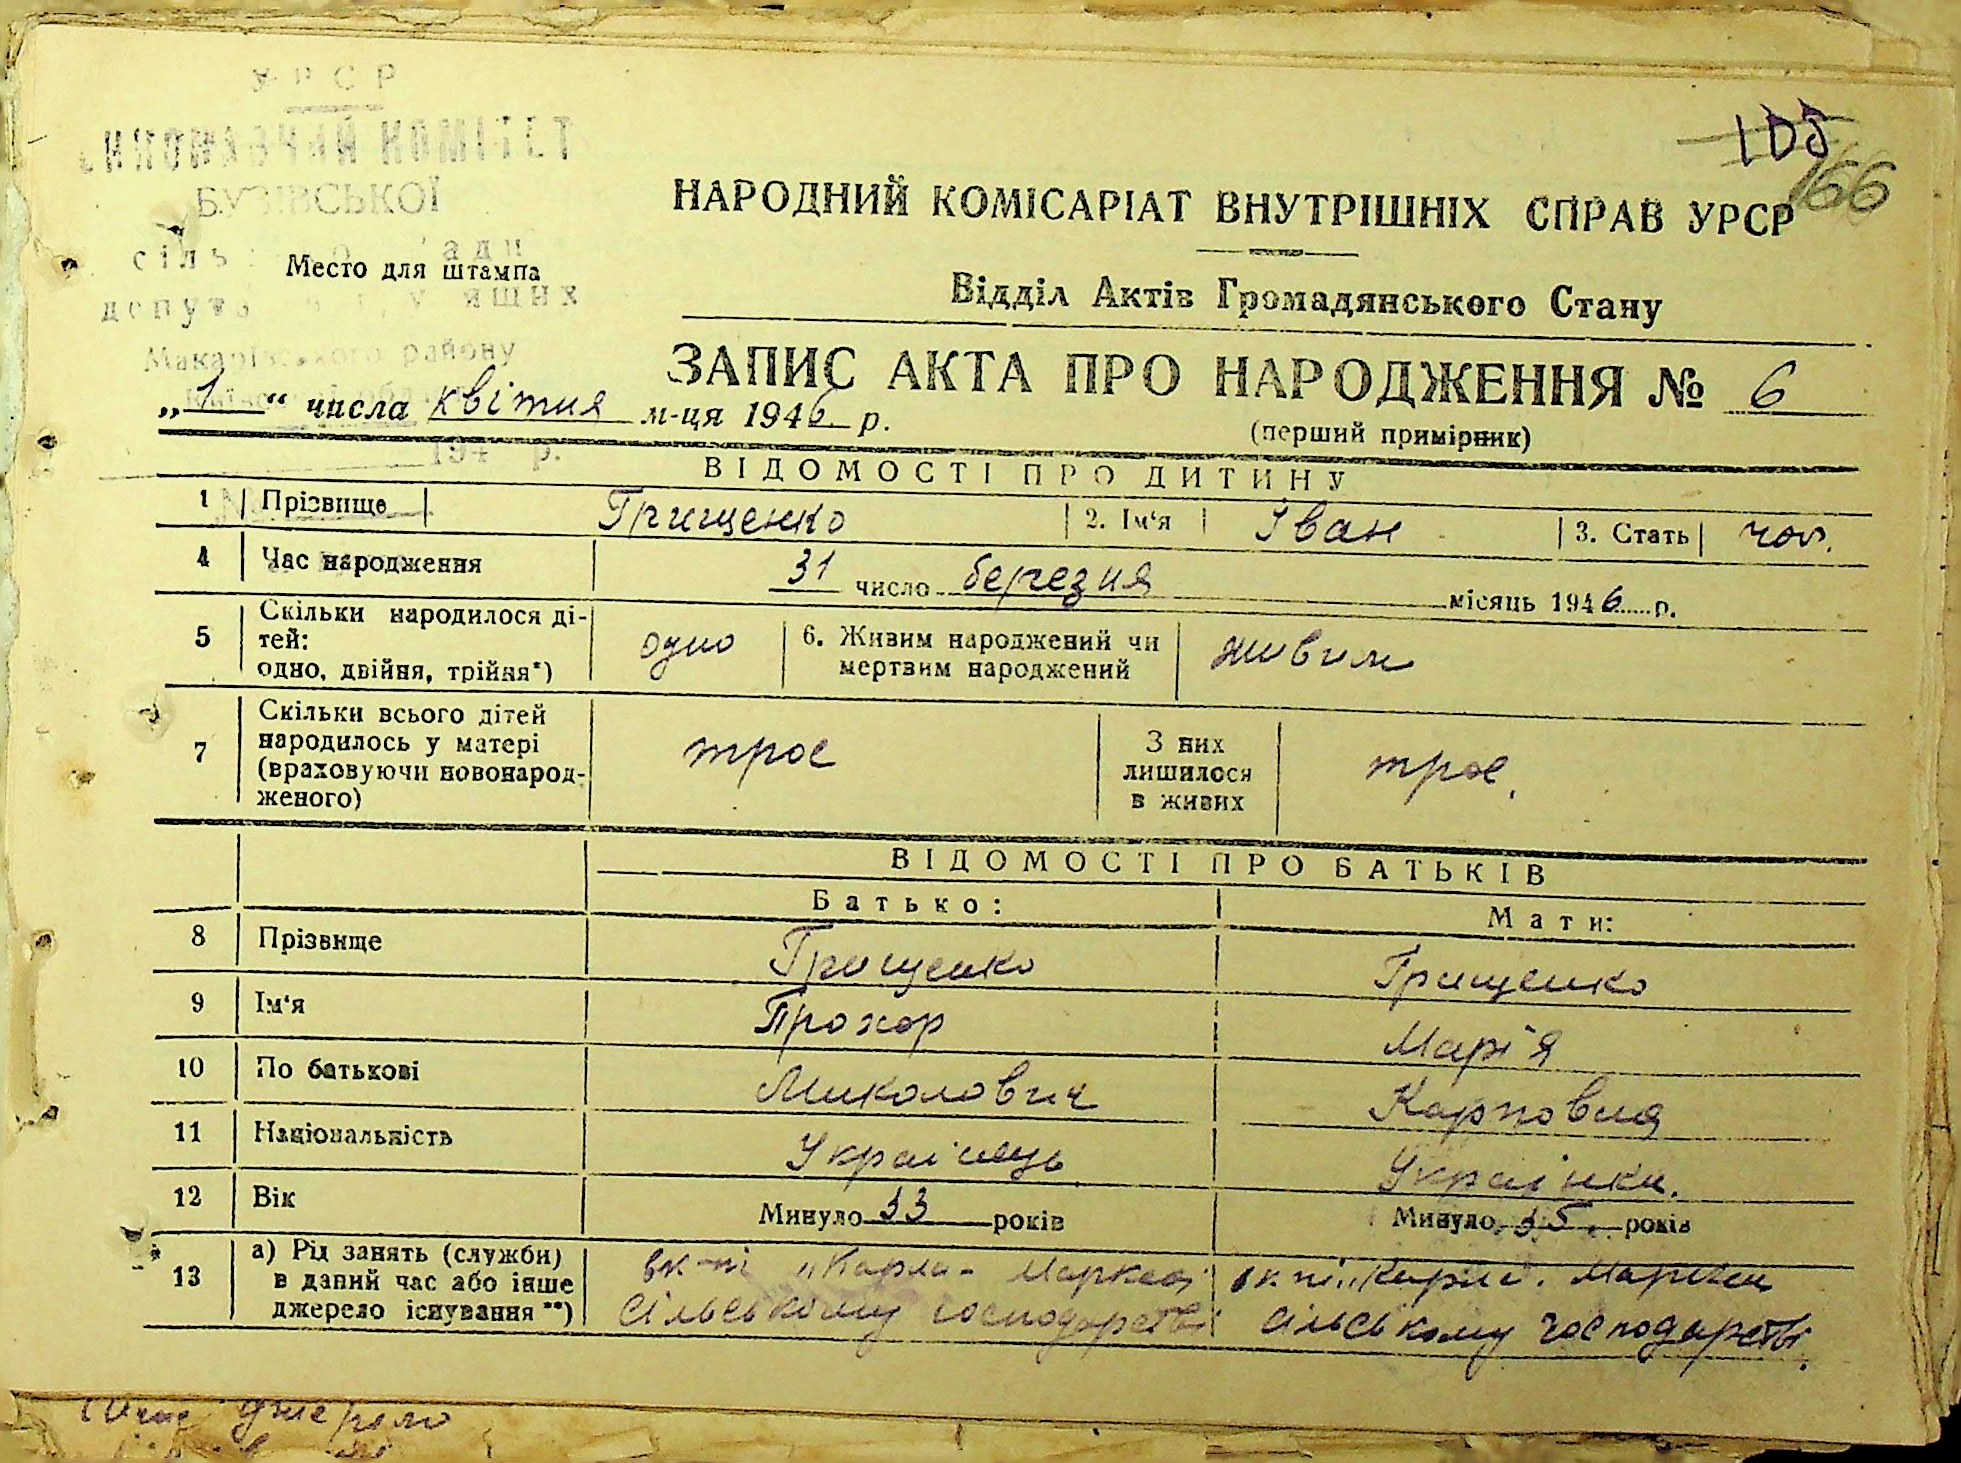 УРСР
КОМІТЕТ
БУЗІВСЬКОЇ
Макарівського району
Место для штампа
105
166
НАРОДНИЙ КОМІСАРІАТ ВНУТРІШНІХ СПРАВ УРСР
Відділ Актів Громадянського Стану
ЗАПИС АКТА ПРО НАРОДЖЕННЯ № 6
„1“ числа квітня м-ця 1946 р.
(перший примірник)
194 р.
ВІДОМОСТІ ПРО ДИТИНУ
1 Прізвище Грищенко 2. Ім‘я Іван 3. Стать чол.
4 Час народження 31 число березня місяць 1946 р.
5 Скільки народилося ді-
тей:
одно, двійня, трійня*) одно 6. Живим народжений чи
мертвим народжений живим
7 Скільки всього дітей
народилось у матері
(враховуючи новонарод-
женого) троє З них
лишилося
в живих троє.
ВІДОМОСТІ ПРО БАТЬКІВ
Батько: Мати:
8 Прізвище Грищенко Грищенко
9 Ім‘я Прохор Марія
10 По батькові Миколович Карповна
11 Національність Українець Українка.
12 Вік Минуло 33 років Минуло 35 років
13 а) Рід занять (служби)
в даний час або інше
джерело існування **) вк-пі „Карла-Маркса
сільському господарстві
вк-пі „Карла. Маркса
сільському господарстві.
джерело